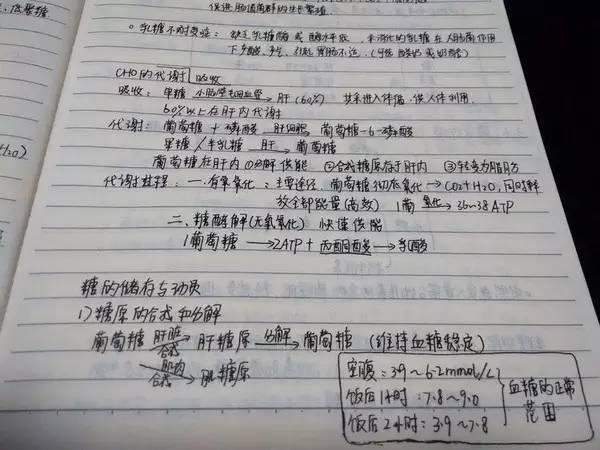 促进肠道菌群的生长繁殖
。乳糖不耐受症：缺乏乳糖酶或酶水平低，未消化的乳糖在人肠菌作用
下产酸、产气，引起胃肠不适。
CHO的代谢 吸收
吸收：单糖 小肠 → 肝(60%) 其余进入体循，供人体利用.
60%以上在肝内代谢
代谢 葡萄糖 + 磷酸 肝细胞→ 葡萄糖-6-磷酸
果糖/半乳糖 肝→ 葡萄糖
葡萄糖在肝内 ①分解供能 ②合成糖原存于肝内 ③转变为脂肪
代谢过程：一.有氧氧化：主要途径，葡萄糖彻底氧化→CO2+H2O，同时释
放全部能量(高效) 1葡 氧化→ 36~38ATP
二、糖酵解(无氧氧化) 快速供能
1葡萄糖 → 2ATP + 丙酮酸 → 乳酸
糖的储存与动员
1) 糖原的合成和分解
葡萄糖 肝脏 合成→ 肝糖原 分解→ 葡萄糖 (维持血糖稳定)
肌肉 合成→ 肌糖原
空腹：3.9~6.2mmol/L
饭后1小时：7.8~9.0
饭后2小时：3.9~7.8
血糖的正常
范围